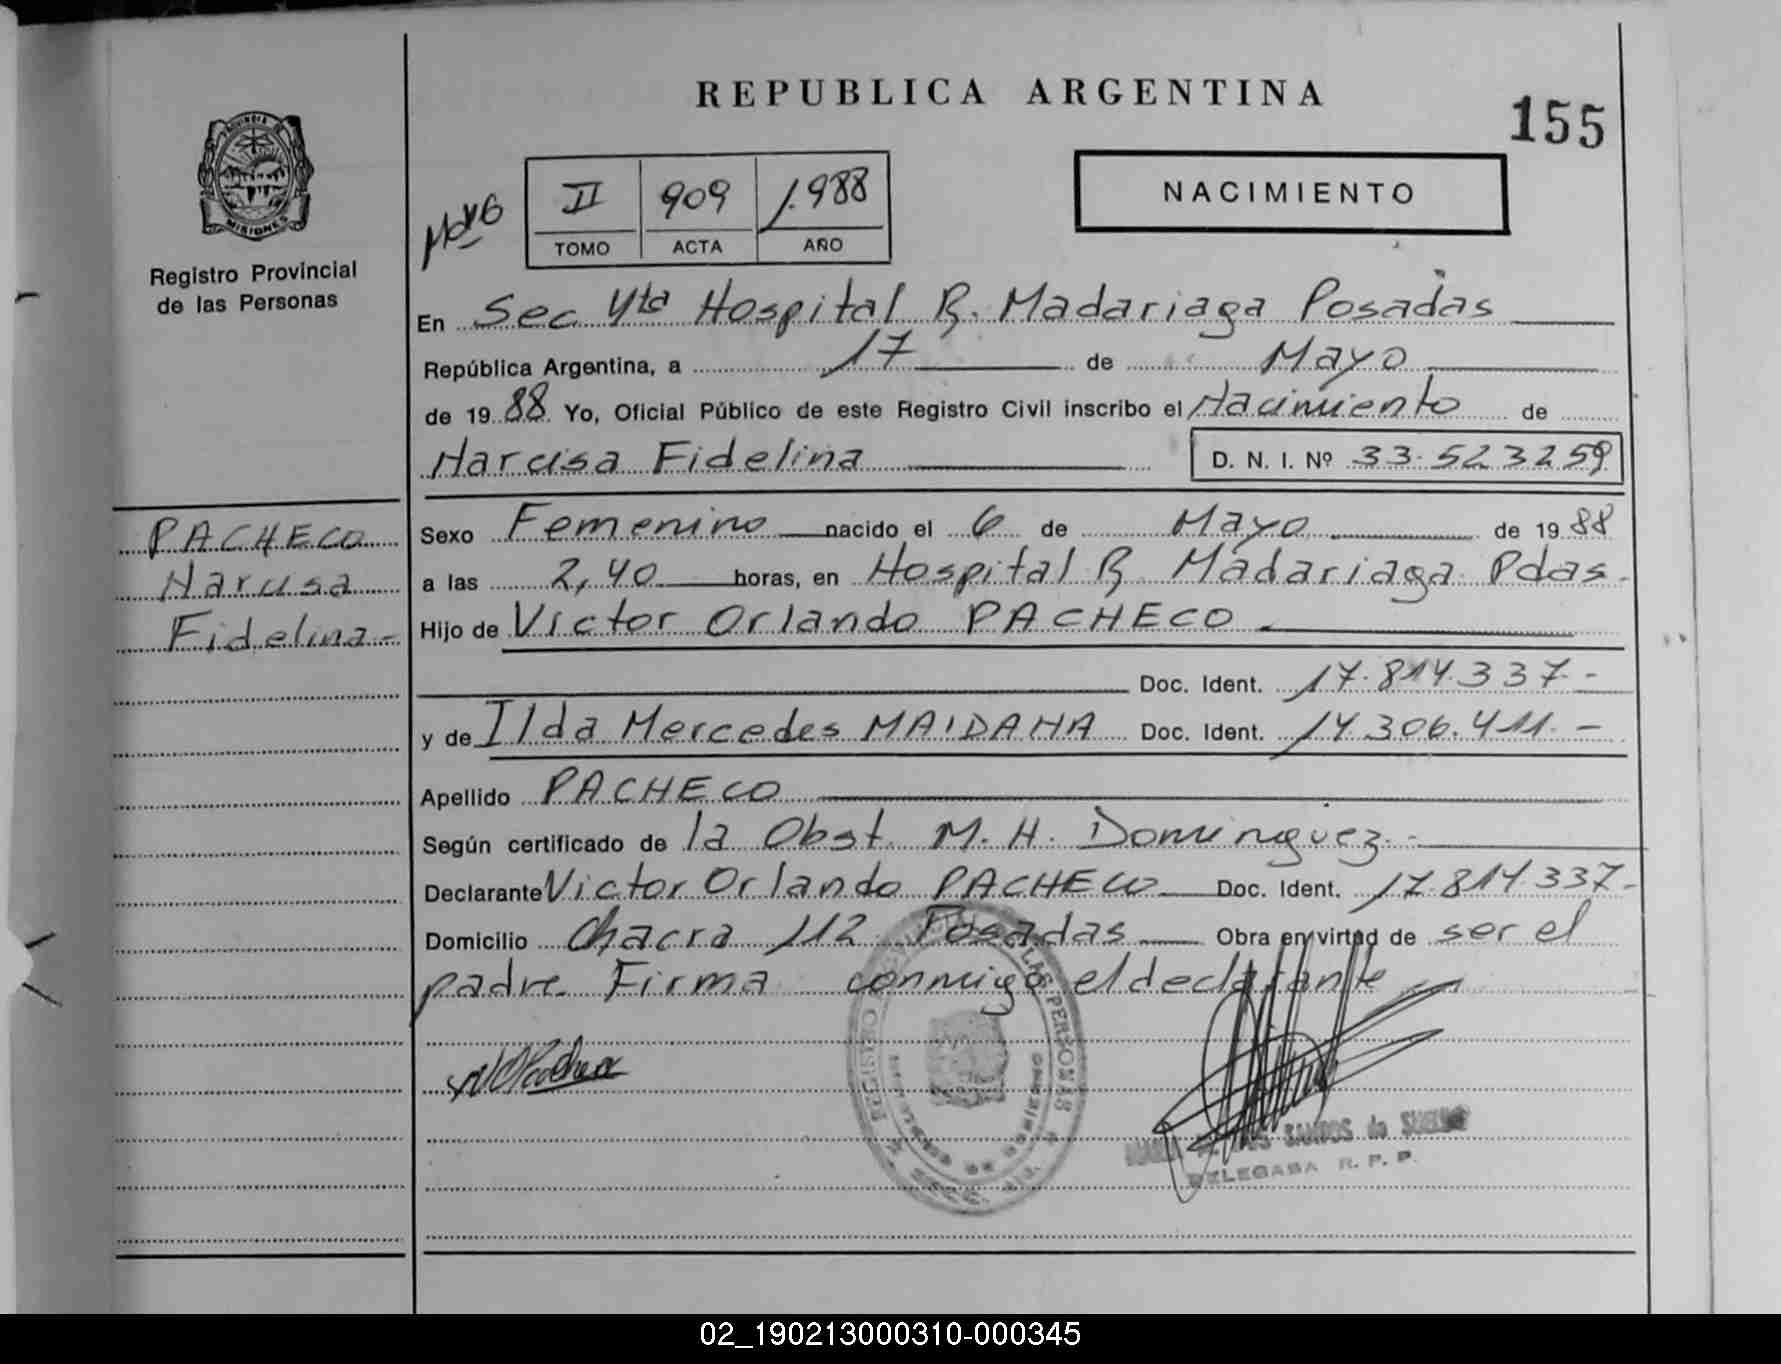 REPUBLICA ARGENTINA
155
PROVINCIA DE
MISIONES
Registro Provincial
de las Personas
II 909 1.988
TOMO ACTA AÑO
NACIMIENTO
En Sec 4ta Hospital R. Madariaga Posadas
República Argentina, a 17 de Mayo
de 1988 Yo, Oficial Público de este Registro Civil inscribo el Nacimiento de
Narcisa Fidelina D. N. I. Nº 33.523259
PACHECO
Narcisa
Fidelina-
Sexo Femenino nacido el 6 de Mayo de 1988
a las 2,40 horas, en Hospital R Madariaga Pdas.
Hijo de Victor Orlando PACHECO
Doc. Ident. 17.814.337.-
y de Ilda Mercedes MAIDANA Doc. Ident. 14.306.411.-
Apellido PACHECO
Según certificado de la Obst. M. H. Dominguez.-
Declarante Victor Orlando PACHECO Doc. Ident. 17.814337-
Domicilio Chacra 112 Posadas Obra en virtud de ser el
padre. Firma conmigo el declarante
SANTOS de
DELEGADA R. P. P.
02_190213000310-000345